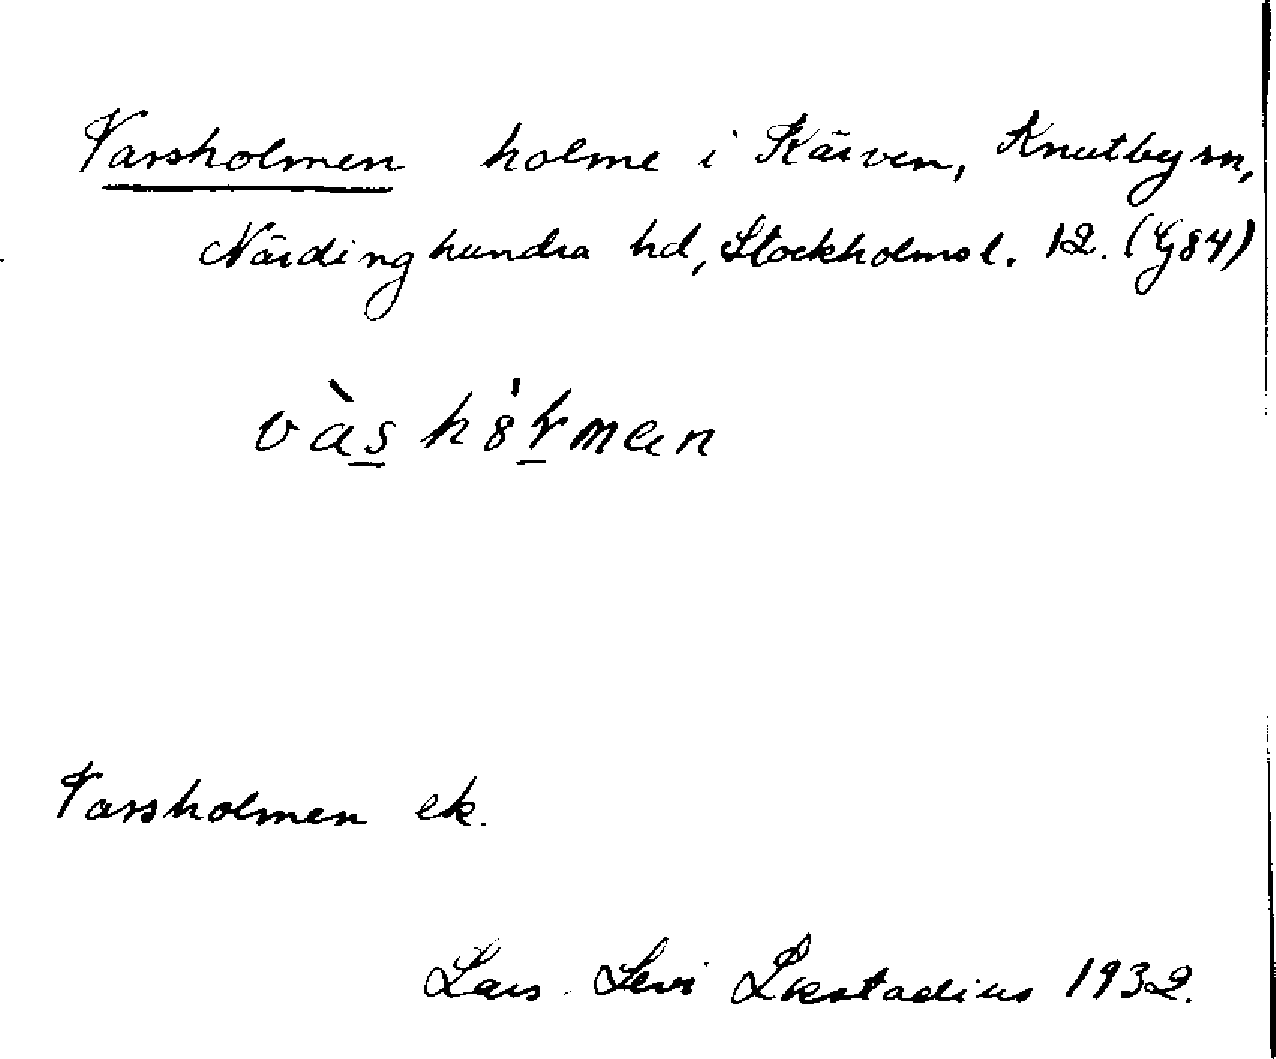 Varsholmen holme i Kärven, Knutby sn,
Närdinghundra hd, Stockholms l. 12. (G84)
vàs hȯlmen
Varsholmen ek.
Lars Levi Læstadius 1932.